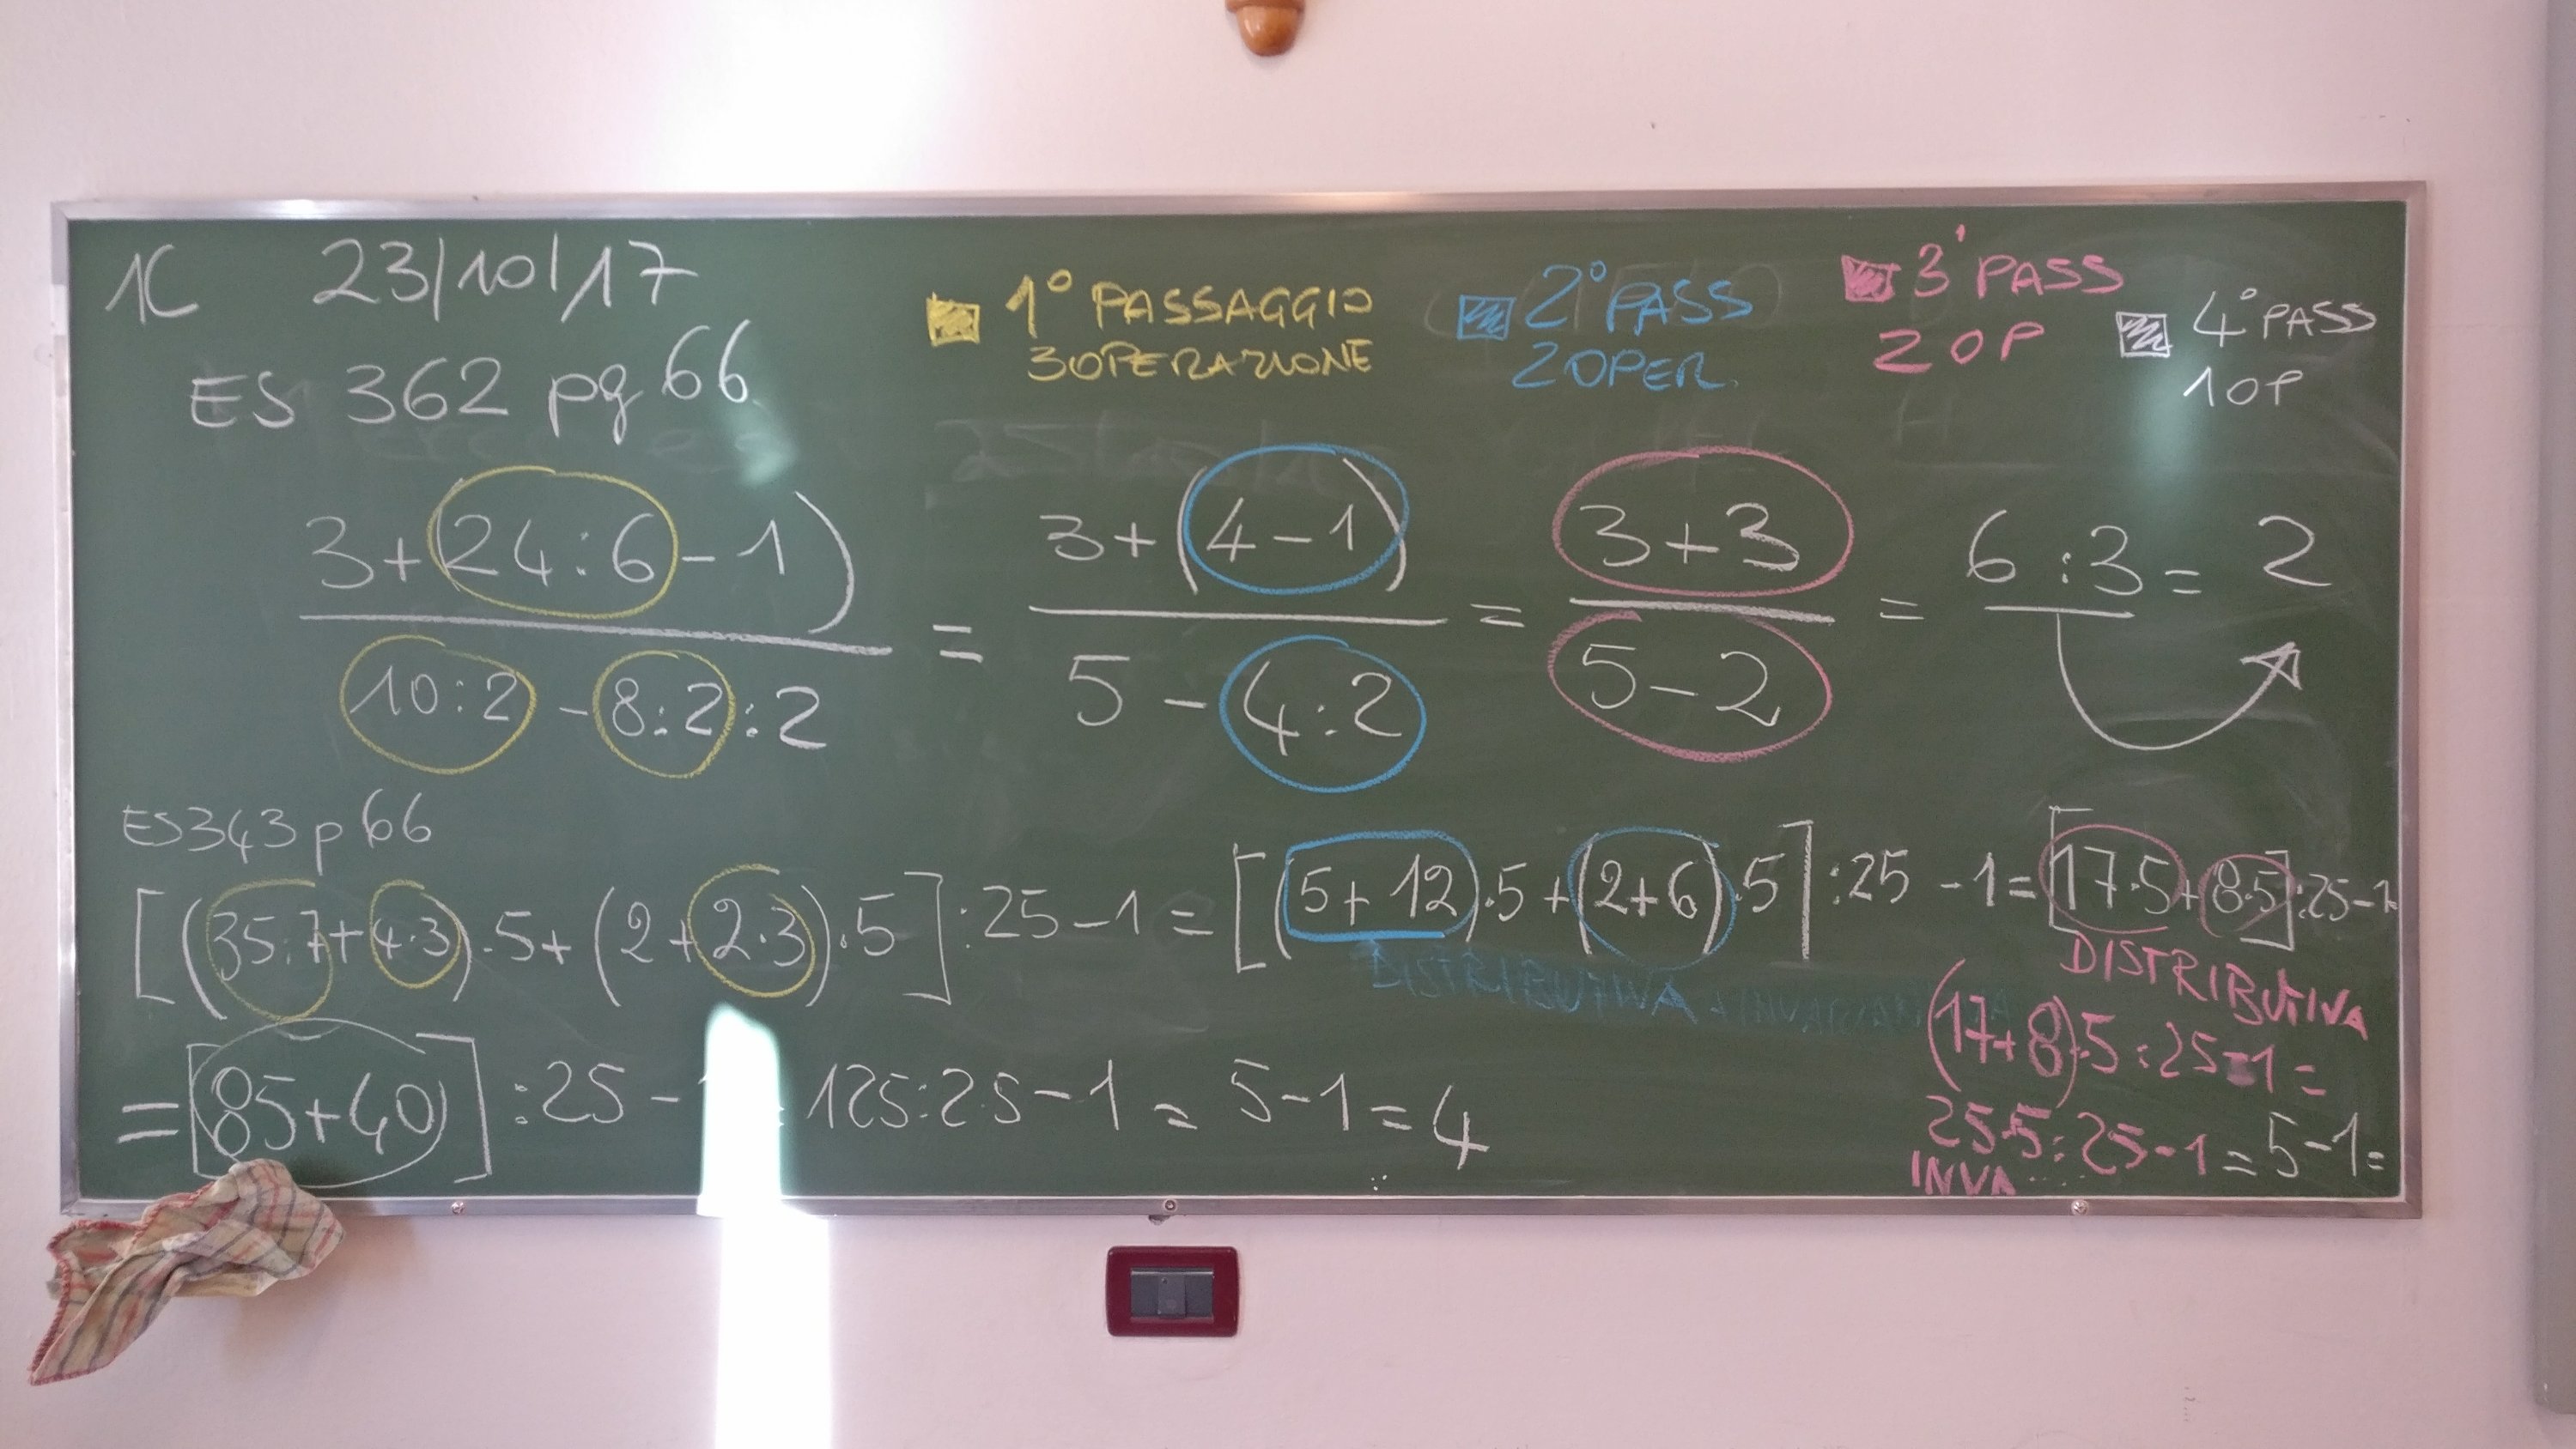 1C 23/10/17
ES 362 pg 66
1° PASSAGGIO
3 OPERAZIONE
2° PASS
2 OPER.
3° PASS
2 OP
4° PASS
1 OP
3+(24:6-1) / 10:2-8:2:2 = 3+(4-1) / 5-4:2 = 3+3 / 5-2 = 6:3= 2
ES343 p 66
[(35:7+4·3)·5+(2+2·3)·5]:25-1=[(5+12)·5+(2+6)·5]:25-1=[17·5+8·5]:25-1=
DISTRIBUTIVA + INVARIANTIVA
DISTRIBUTIVA
(17+8)·5:25-1=
25·5:25-1=5-1=
INVA...
=[85+40]:25- 125:25-1= 5-1=4